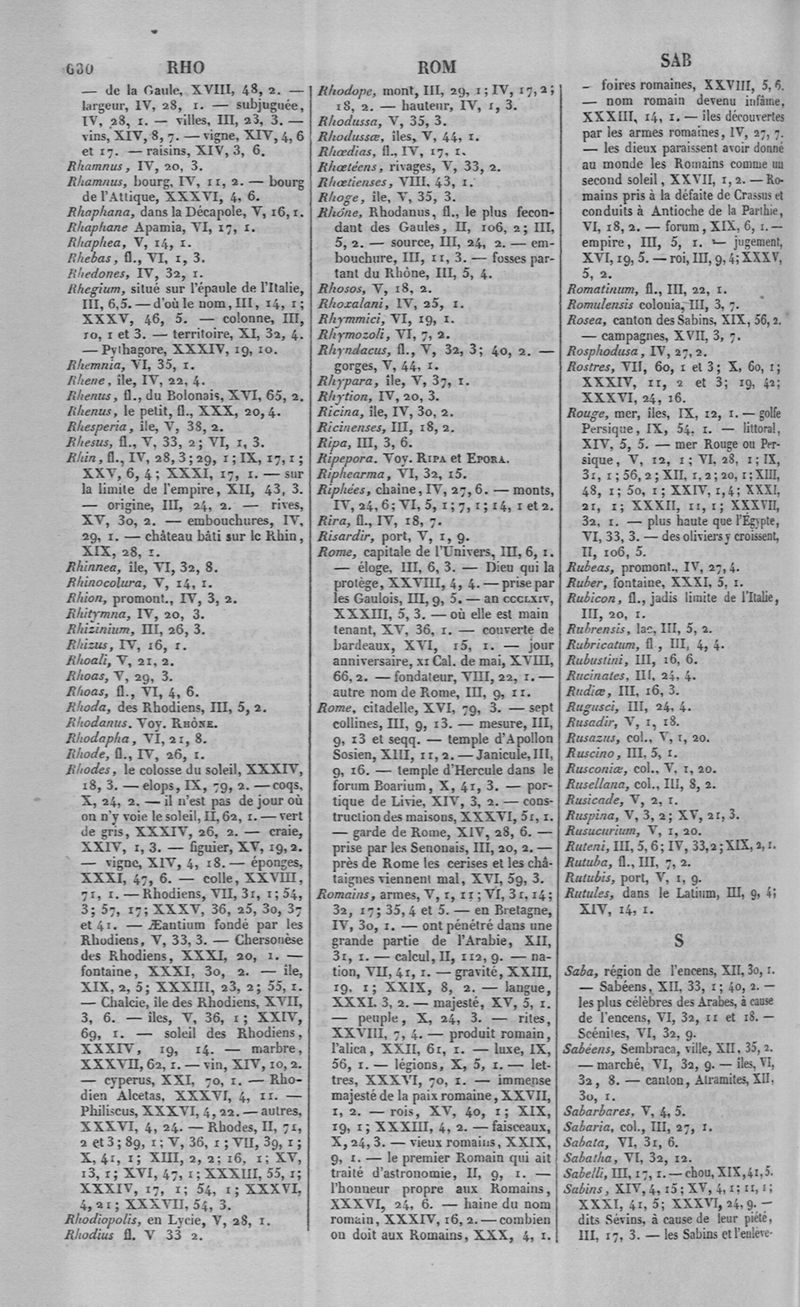 630
RHO
ROM
SAB
— de la Gaule, XVIII, 48, 2. —
largeur, IV, 28, 1. — subjuguée,
IV, 28, 1. — villes, III, 23, 3. —
vins, XIV, 8, 7. — vigne, XIV, 4, 6
et 17. — raisins, XIV, 3, 6.
Rhamnus, IV, 20, 3.
Rhamnus, bourg, IV, 11, 2. — bourg
de l'Attique, XXXVI, 4, 6.
Rhaphana, dans la Décapole, V, 16, 1.
Rhaphane Apamia, VI, 17, 1.
Rhaphea, V, 14, 1.
Rhebas, fl., VI, 1, 3.
Rhedones, IV, 32, 1.
Rhegium, situé sur l'épaule de l'Italie,
III, 6, 5. — d'où le nom, III, 14, 1;
XXXV, 46, 5. — colonne, III,
10, 1 et 3. — territoire, XI, 32, 4.
— Pythagore, XXXIV, 19, 10.
Rhemnia, VI, 35, 1.
Rhene, île, IV, 22, 4.
Rhenus, fl., du Bolonais, XVI, 65, 2.
Rhenus, le petit, fl., XXX, 20, 4.
Rhesperia, île, V, 38, 2.
Rhesus, fl., V, 33, 2; VI, 1, 3.
Rhin, fl., IV, 28, 3; 29, 1; IX, 17, 1;
XXV, 6, 4; XXXI, 17, 1. — sur
la limite de l'empire, XII, 43, 3.
— origine, III, 24, 2. — rives,
XV, 30, 2. — embouchures, IV,
29, 1. — château bâti sur le Rhin,
XIX, 28, 1.
Rhinnea, île, VI, 32, 8.
Rhinocolura, V, 14, 1.
Rhion, promont., IV, 3, 2.
Rhitymna, IV, 20, 3.
Rhizinium, III, 26, 3.
Rhizus, IV, 16, 1.
Rhoali, V, 21, 2.
Rhoas, V, 29, 3.
Rhoas, fl., VI, 4, 6.
Rhoda, des Rhodiens, III, 5, 2.
Rhodanus. Voy. RHÔNE.
Rhodapha, VI, 21, 8.
Rhode, fl., IV, 26, 1.
Rhodes, le colosse du soleil, XXXIV,
18, 3. — elops, IX, 79, 2. — coqs,
X, 24, 2. — il n'est pas de jour où
on n'y voie le soleil, II, 62, 1. — vert
de gris, XXXIV, 26, 2. — craie,
XXIV, 1, 3. — figuier, XV, 19, 2.
— vigne, XIV, 4, 18. — éponges,
XXXI, 47, 6. — colle, XXVIII,
71, 1. — Rhodiens, VII, 31, 1; 54,
3; 57, 17; XXXV, 36, 25, 30, 37
et 41. — Æantium fondé par les
Rhodiens, V, 33, 3. — Chersonèse
des Rhodiens, XXXI, 20, 1. —
fontaine, XXXI, 30, 2. — île,
XIX, 2, 5; XXXIII, 23, 2; 55, 1.
— Chalcie, île des Rhodiens, XVII,
3, 6. — îles, V, 36, 1; XXIV,
69, 1. — soleil des Rhodiens,
XXXIV, 19, 14. — marbre,
XXXVII, 62, 1. — vin, XIV, 10, 2.
— cyperus, XXI, 70, 1. — Rho-
dien Alcetas, XXXVI, 4, 11. —
Philiscus, XXXVI, 4, 22. — autres,
XXXVI, 4, 24. — Rhodes, II, 71,
2 et 3; 89, 1; V, 36, 1; VII, 39, 1;
X, 41, 1; XIII, 2, 2; 16, 1; XV,
13, 1; XVI, 47, 1; XXXIII, 55, 1;
XXXIV, 17, 1; 54, 1; XXXVI,
4, 21; XXXVII, 54, 3.
Rhodiopolis, en Lycie, V, 28, 1.
Rhodius fl. V 33 2.
Rhodope, mont, III, 29, 1; IV, 17, 2;
18, 2. — hauteur, IV, 1, 3.
Rhodussa, V, 35, 3.
Rhodussæ, îles, V, 44, 1.
Rhœdias, fl., IV, 17, 1.
Rhœtéens, rivages, V, 33, 2.
Rhœtienses, VIII, 43, 1.
Rhoge, île, V, 35, 3.
Rhône, Rhodanus, fl., le plus fecon-
dant des Gaules, II, 106, 2; III,
5, 2. — source, III, 24, 2. — em-
bouchure, III, 11, 3. — fosses par-
tant du Rhône, III, 5, 4.
Rhosos, V, 18, 2.
Rhoxalani, IV, 25, 1.
Rhymmici, VI, 19, 1.
Rhymozoli, VI, 7, 2.
Rhyndacus, fl., V, 32, 3; 40, 2. —
gorges, V, 44, 1.
Rhypara, île, V, 37, 1.
Rhytion, IV, 20, 3.
Ricina, île, IV, 30, 2.
Ricinenses, III, 18, 2.
Ripa, III, 3, 6.
Ripepora. Voy. RIPA et EPORA.
Riphearma, VI, 32, 15.
Riphées, chaîne, IV, 27, 6. — monts,
IV, 24, 6; VI, 5, 1; 7, 1; 14, 1 et 2.
Rira, fl., IV, 18, 7.
Risardir, port, V, 1, 9.
Rome, capitale de l'Univers, III, 6, 1.
— éloge, III, 6, 3. — Dieu qui la
protège, XXVIII, 4, 4. — prise par
les Gaulois, III, 9, 5. — an CCCLXIV,
XXXIII, 5, 3. — où elle est main
tenant, XV, 36, 1. — couverte de
bardeaux, XVI, 15, 1. — jour
anniversaire, XI Cal. de mai, XVIII,
66, 2. — fondateur, VIII, 22, 1. —
autre nom de Rome, III, 9, 11.
Rome, citadelle, XVI, 79, 3. — sept
collines, III, 9, 13. — mesure, III,
9, 13 et seqq. — temple d'Apollon
Sosien, XIII, 11, 2. — Janicule, III,
9, 16. — temple d'Hercule dans le
forum Boarium, X, 41, 3. — por-
tique de Livie, XIV, 3, 2. — cons-
truction des maisons, XXXVI, 51, 1.
— garde de Rome, XIV, 28, 6. —
prise par les Senonais, III, 20, 2. —
près de Rome les cerises et les châ-
taignes viennent mal, XVI, 59, 3.
Romains, armes, V, 1, 11; VI, 31, 14;
32, 17; 35, 4 et 5. — en Bretagne,
IV, 30, 1. — ont pénétré dans une
grande partie de l'Arabie, XII,
31, 1. — calcul, II, 112, 9. — na-
tion, VII, 41, 1. — gravité, XXIII,
19, 1; XXIX, 8, 2. — langue,
XXXI, 3, 2. — majesté, XV, 5, 1.
— peuple, X, 24, 3. — rites,
XXVIII, 7, 4. — produit romain,
l'alica, XXII, 61, 1. — luxe, IX,
56, 1. — légions, X, 5, 1. — let-
tres, XXXVI, 70, 1. — immense
majesté de la paix romaine, XXVII,
1, 2. — rois, XV, 40, 1; XIX,
19, 1; XXXIII, 4, 2. — faisceaux,
X, 24, 3. — vieux romains, XXIX,
9, 1. — le premier Romain qui ait
traité d'astronomie, II, 9, 1. —
l'honneur propre aux Romains,
XXXVI, 24, 6. — haine du nom
romain, XXXIV, 16, 2. — combien
on doit aux Romains, XXX, 4, 1.
- foires romaines, XXVIII, 5, 6.
— nom romain devenu infâme,
XXXIII, 14, 1. — îles découvertes
par les armes romaines, IV, 27, 7.
— les dieux paraissent avoir donné
au monde les Romains comme un
second soleil, XXVII, 1, 2. — Ro-
mains pris à la défaite de Crassus et
conduits à Antioche de la Parthie,
VI, 18, 2. — forum, XIX, 6, 1. —
empire, III, 5, 1. — jugement,
XVI, 19, 5. — roi, III, 9, 4; XXXV,
5, 2.
Romatinum, fl., III, 22, 1.
Romulensis colonia, III, 3, 7.
Rosea, canton des Sabins, XIX, 56, 2.
— campagnes, XVII, 3, 7.
Rosphodusa, IV, 27, 2.
Rostres, VII, 60, 1 et 3; X, 60, 1;
XXXIV, 11, 2 et 3; 19, 42;
XXXVI, 24, 16.
Rouge, mer, îles, IX, 12, 1. — golfe
Persique, IX, 54, 1. — littoral,
XIV, 5, 5. — mer Rouge ou Per-
sique, V, 12, 1; VI, 28, 1; IX,
31, 1; 56, 2; XII, 1, 2; 20, 1; XIII,
48, 1; 50, 1; XXIV, 1, 4; XXXI,
21, 1; XXXII, 11, 1; XXXVII,
32, 1. — plus haute que l'Égypte,
VI, 33, 3. — des oliviers y croissent,
II, 106, 5.
Rubeas, promont., IV, 27, 4.
Ruber, fontaine, XXXI, 5, 1.
Rubicon, fl., jadis limite de l'Italie,
III, 20, 1.
Rubrensis, lac, III, 5, 2.
Rubricatum, fl, III, 4, 4.
Rubustini, III, 16, 6.
Rucinates, III, 24, 4.
Rudiæ, III, 16, 3.
Rugusci, III, 24, 4.
Rusadir, V, 1, 18.
Rusazus, col., V, 1, 20.
Ruscino, III, 5, 1.
Rusconiæ, col., V, 1, 20.
Rusellana, col., III, 8, 2.
Rusicade, V, 2, 1.
Ruspina, V, 3, 2; XV, 21, 3.
Rusucurium, V, 1, 20.
Ruteni, III, 5, 6; IV, 33, 2; XIX, 2, 1.
Rutuba, fl., III, 7, 2.
Rutubis, port, V, 1, 9.
Rutules, dans le Latium, III, 9, 4;
XIV, 14, 1.
S
Saba, région de l'encens, XII, 30, 1.
— Sabéens, XII, 33, 1; 40, 2. —
les plus célèbres des Arabes, à cause
de l'encens, VI, 32, 11 et 18. —
Scénites, VI, 32, 9.
Sabéens, Sembraca, ville, XII, 35, 2.
— marché, VI, 32, 9. — îles, VI,
32, 8. — canton, Atramites, XII,
30, 1.
Sabarbares, V, 4, 5.
Sabaria, col., III, 27, 1.
Sabata, VI, 31, 6.
Sabatha, VI, 32, 12.
Sabelli, III, 17, 1. — chou, XIX, 41, 5.
Sabins, XIV, 4, 15; XV, 4, 1; 11, 1;
XXXI, 41, 5; XXXVI, 24, 9. —
dits Sévins, à cause de leur piété,
III, 17, 3. — les Sabins et l'enlève-